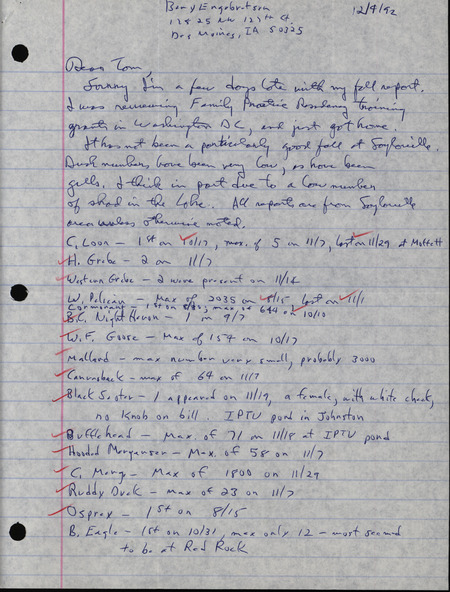 Bery Engebretsen
Des Moines, IA 50325
12/4/92
Dear Tom,
Sorry I'm a few days late with my fall report.
I was reviewing Family Practice Residency training
grants in Washington DC, and just got home.
It has not been a particularly good fall at Saylorville.
Duck numbers have been very low, as have been
gulls. I think in part due to a low number
of shad in the Lake. All reports are from Saylorville
area unless otherwise noted.
C. Loon - 1st on 10/17, max. of 5 on 11/7, last on 11/29 at Moffett
H. Grebe - 2 on 11/7
Western Grebe - 2 were present on 11/14
W. Pelican - Max of 2035 on 9/15 last on 11/1
Cormorant - 1st on max of 644 on 10/10
B.C. Night Heron - 1 on 9/7
W.F. Goose - Max of 154 on 10/17
Mallard - max number very small, probably 3000
Canvasback - max of 64 on 11/7
Black Scoter - 1 appeared on 11/19, a female, with white cheek,
no knob on bill. IPTU pond in Johnston
Bufflehead - Max. of 71 on 11/18 at IPTU pond
Hooded Merganser - Max. of 58 on 11/7
C. Merg - Max of 1800 on 11/29
Ruddy Duck - max of 23 on 11/7
Osprey - 1st on 8/15
B. Eagle - 1st on 10/31, max only 12 - most seemed
to be at Red Rock